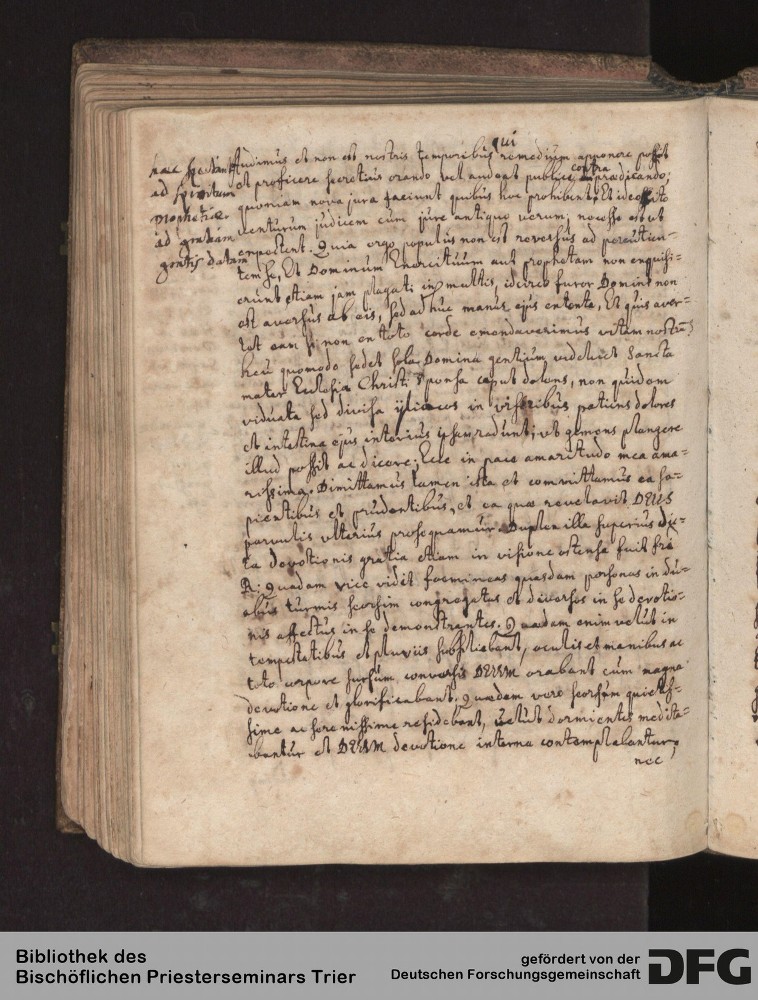 qui
haec spectant
ad spiritum
Prophetiae
ad gratiam
gratis datam
Audimus et non est nostris temporibus remedium apponere possit
et proficere secretius orando vel audeat publice contra praedicando;
quoniam nova jura faciunt quibus hoc prohibent. Et ideo
venturum judicem cum jure antiquo verum; necesse est ut
expectent. Quia ergo populus non est reversus ad percutien-
tem se, Et Dominum Exercituum aut prophetam non exquisi-
erunt etiam jam plagati in multis, idcirco furor Domini non
est aversus ab eis, sed adhuc manus ejus extenta, Et quis aver-
tat eam si non ex toto corde emendaverimus vitam nostram?
heu quomodo sedet sola Domina gentium videlicet Sancta
mater Ecclesia Christi sponsa caput dolens, non quidem
viduata sed divisa yliacos in visceribus patiens dolores
et intestina ejus interius ipsam radunt; ut gemens plangere
illud possit ac dicere; Ecce in pace amaritudo mea ama-
rissima. Dimittamus tamen ista et committamus ea sa-
pientibus et prudentibus, et ea quae revelavit DEUS
parvulis ulterius prosequamur. Duplex illa superius dic-
ta devotionis gratia etiam in visione ostensa fuit
R: Quadam vice vidit foemineas quasdam personas in du-
abus turmis seorsim congregatas et diversos in se devotio-
nis affectus in se demonstrantes. Quaedam enim velut in
tempestatibus et pluviis subsiliebant, oculis et manibus ac
toto corpore sursum conversis DEUM orabant cum magna
devotione et glorificabant. Quaedam vero seorsum quietis-
sime ac serenissime residebant, velut dormientes medita-
bantur et DEUM devotione interna contemplabantur,
nec
Bibliothek des
Bischöflichen Priesterseminars Trier
gefördert von der
Deutschen Forschungsgemeinschaft
DFG